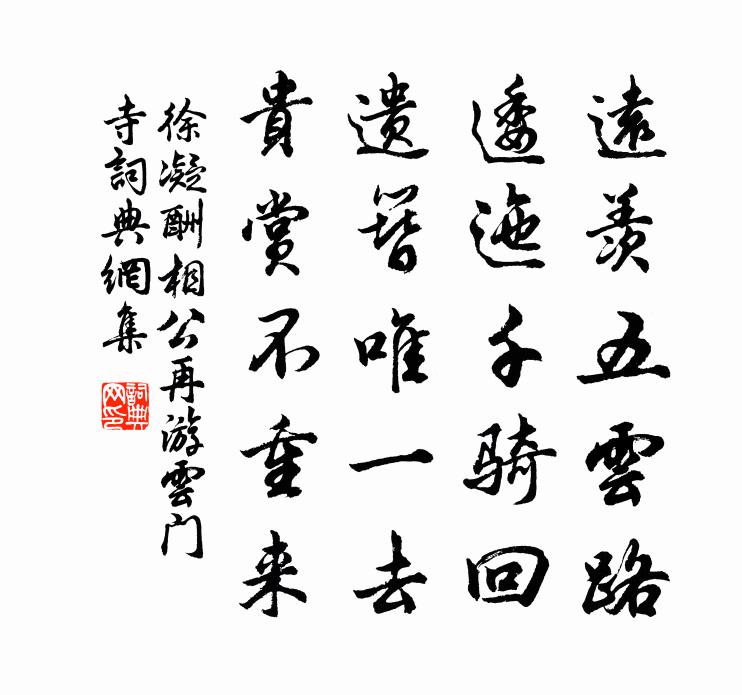 遠羨五雲路
逶迤千骑回
遗簪唯一去
貴賞不重来
徐凝酬相公再游雲門
寺詞典網集
詞典网印